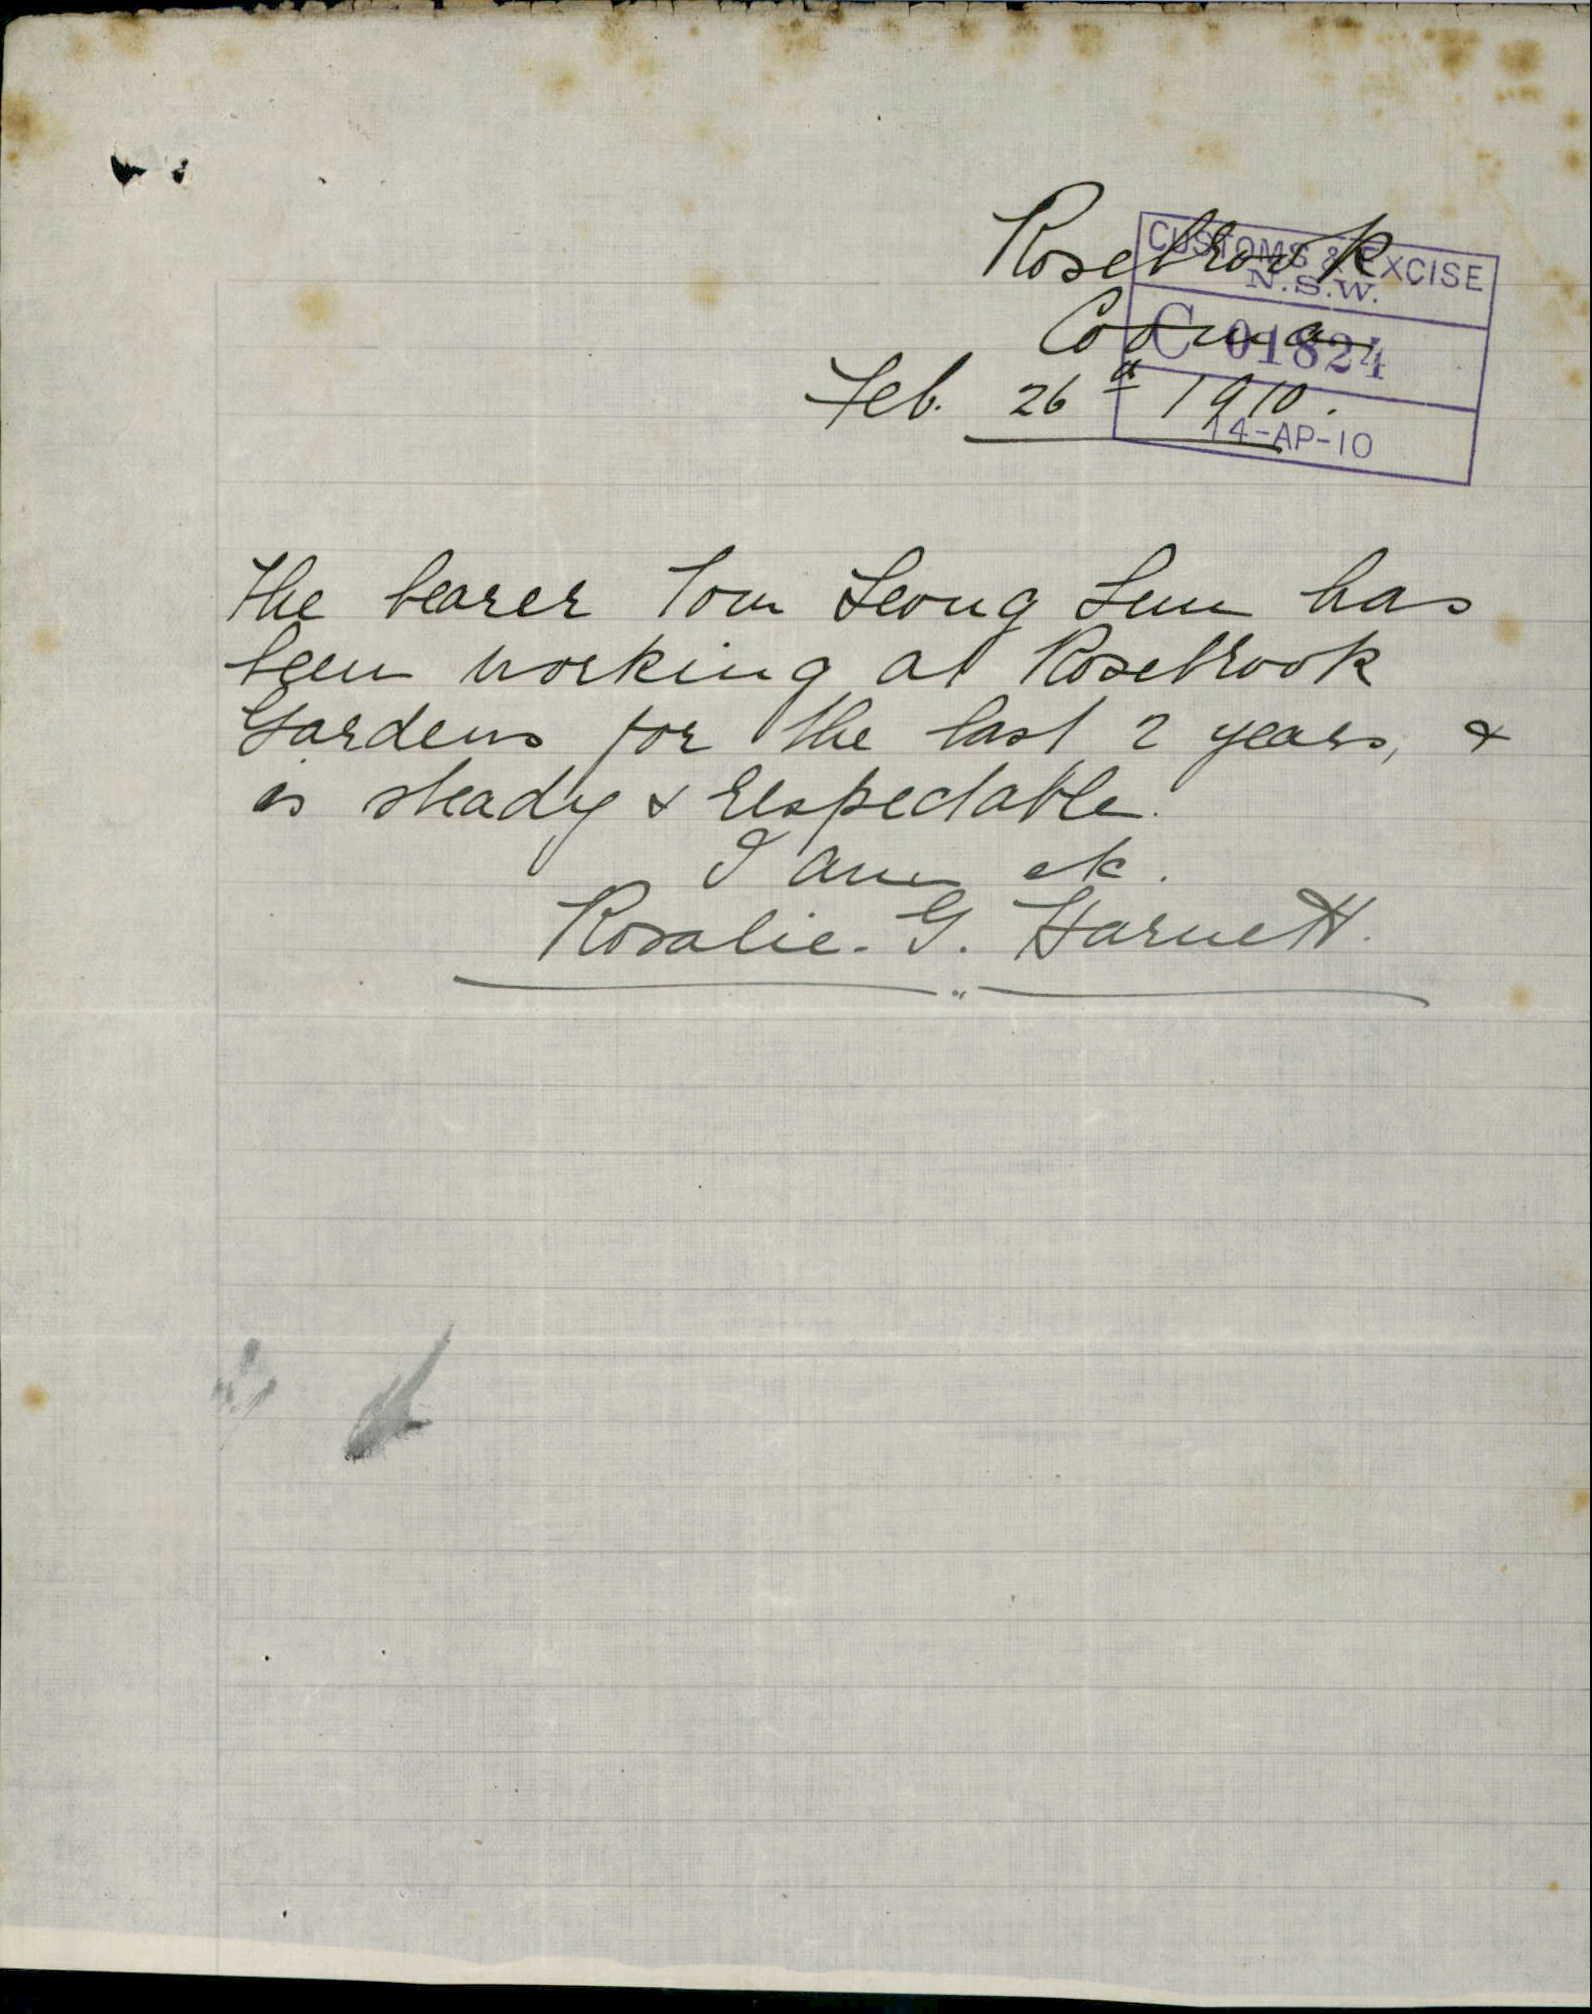 Rosebrook
Cooma
Feb. 26th 1910.
CUSTOMS & EXCISE
N.S.W.
C 01824
14-AP-10
The bearer Tom Leong Lum has
been working at Rosebrook
Gardens for the last 2 years, &
is steady & respectable.
I am etc.
Rosalie. G. Harnett.